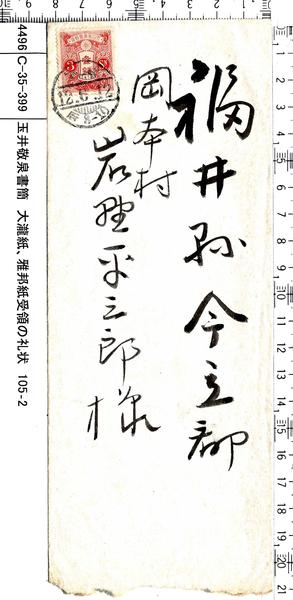 福井県今立郡
岡本村
岩野平三郎様
4496 C-35-399 玉井敬泉書簡 大瀧紙、雅邦紙受領の礼状 105-2